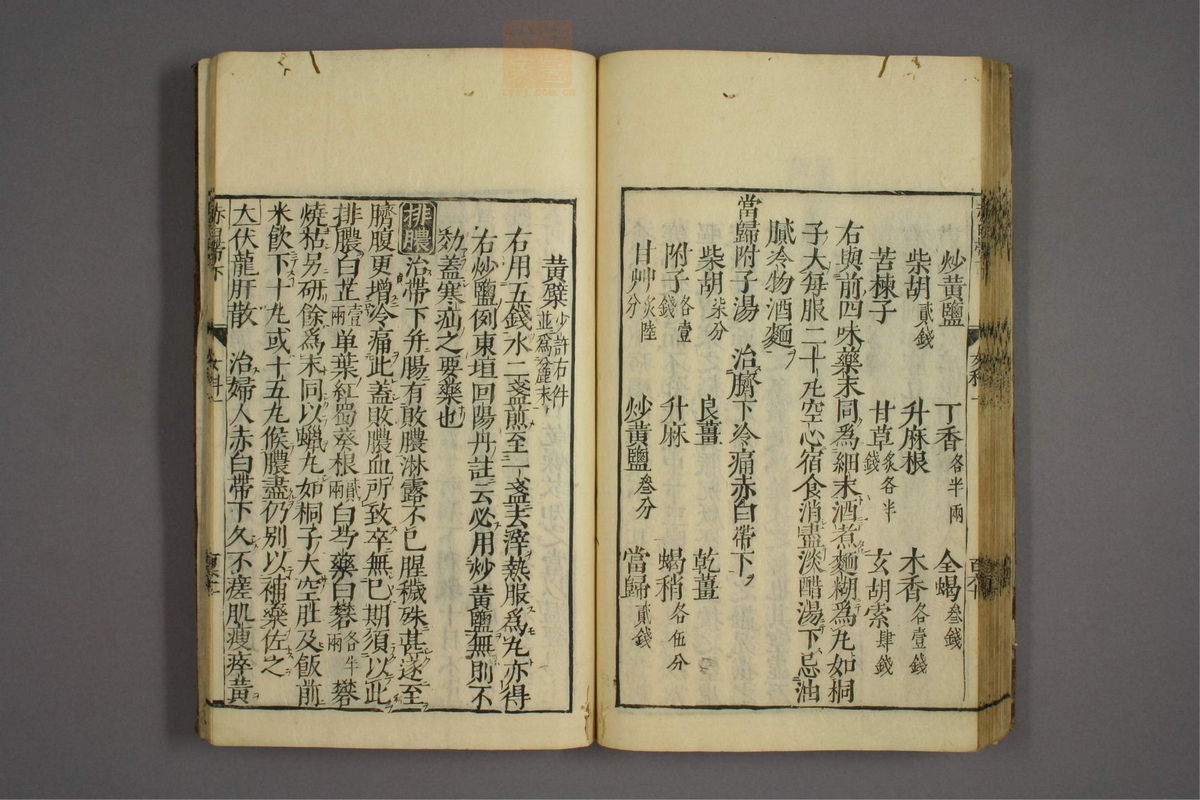 炒黃鹽 丁香各半兩 全蝎叁錢
柴胡貳錢 升麻根 木香各壹錢
苦楝子 甘草炙各半錢 玄胡索肆錢
右與前四味藥末同爲細末酒煮麵糊爲丸如桐
子大每服二十丸空心宿食消盡淡醋湯下忌油
膩冷物酒麵
當歸附子湯 治臍下冷痛赤白帶下
柴胡柒分 良薑 乾薑
附子各壹錢 升麻 蝎稍各伍分
甘艸炙陸分 炒黃鹽叁分 當歸貳錢
黃蘗少許右件並爲麄末
右用五錢水二盞煎至一盞去滓熱服爲丸亦得
右炒鹽例東垣回陽丹註云必用炒黃鹽無則不
効蓋寒疝之要藥也
排膿 治帶下幷腸有敗膿淋露不已腥穢殊甚遂至
臍腹更增冷痛此蓋敗膿血所致卒無已期須以此
排膿白芷壹兩单葉紅蜀葵根貳兩白芍藥白礬各半兩礬
燒枯另研餘爲末同以蠟丸如桐子大空肚及飯前
米飮下十丸或十五丸候膿盡仍别以補藥佐之
大伏龍肝散 治婦人赤白帶下久不瘥肌瘦瘁黃